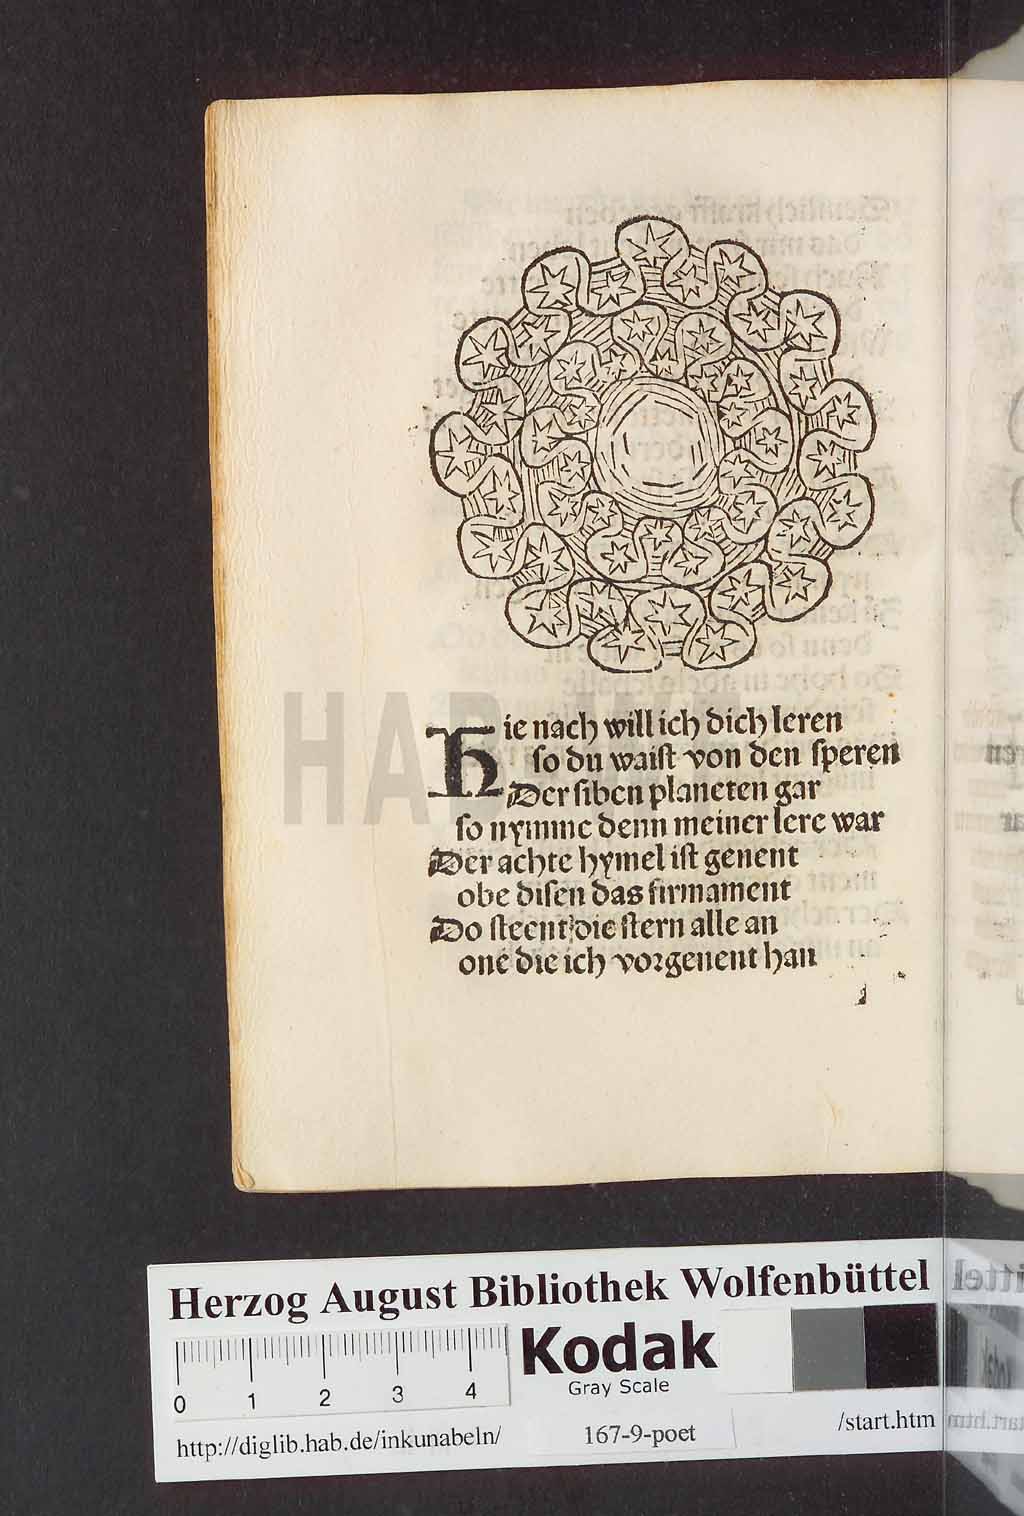 Hie nach will ich dich leren
so du waiſt von den ſperen
Der ſiben planeten gar
so nymme denn meiner lere war
Der achte hymel iſt genent
obe diſen das firmament
Do ſteent die ſtern alle an
one die ich vorgenent han
HAB
Herzog August Bibliothek Wolfenbüttel
Kodak
Gray Scale
0 1 2 3 4
http://diglib.hab.de/inkunabeln/ 167-9-poet /start.htm